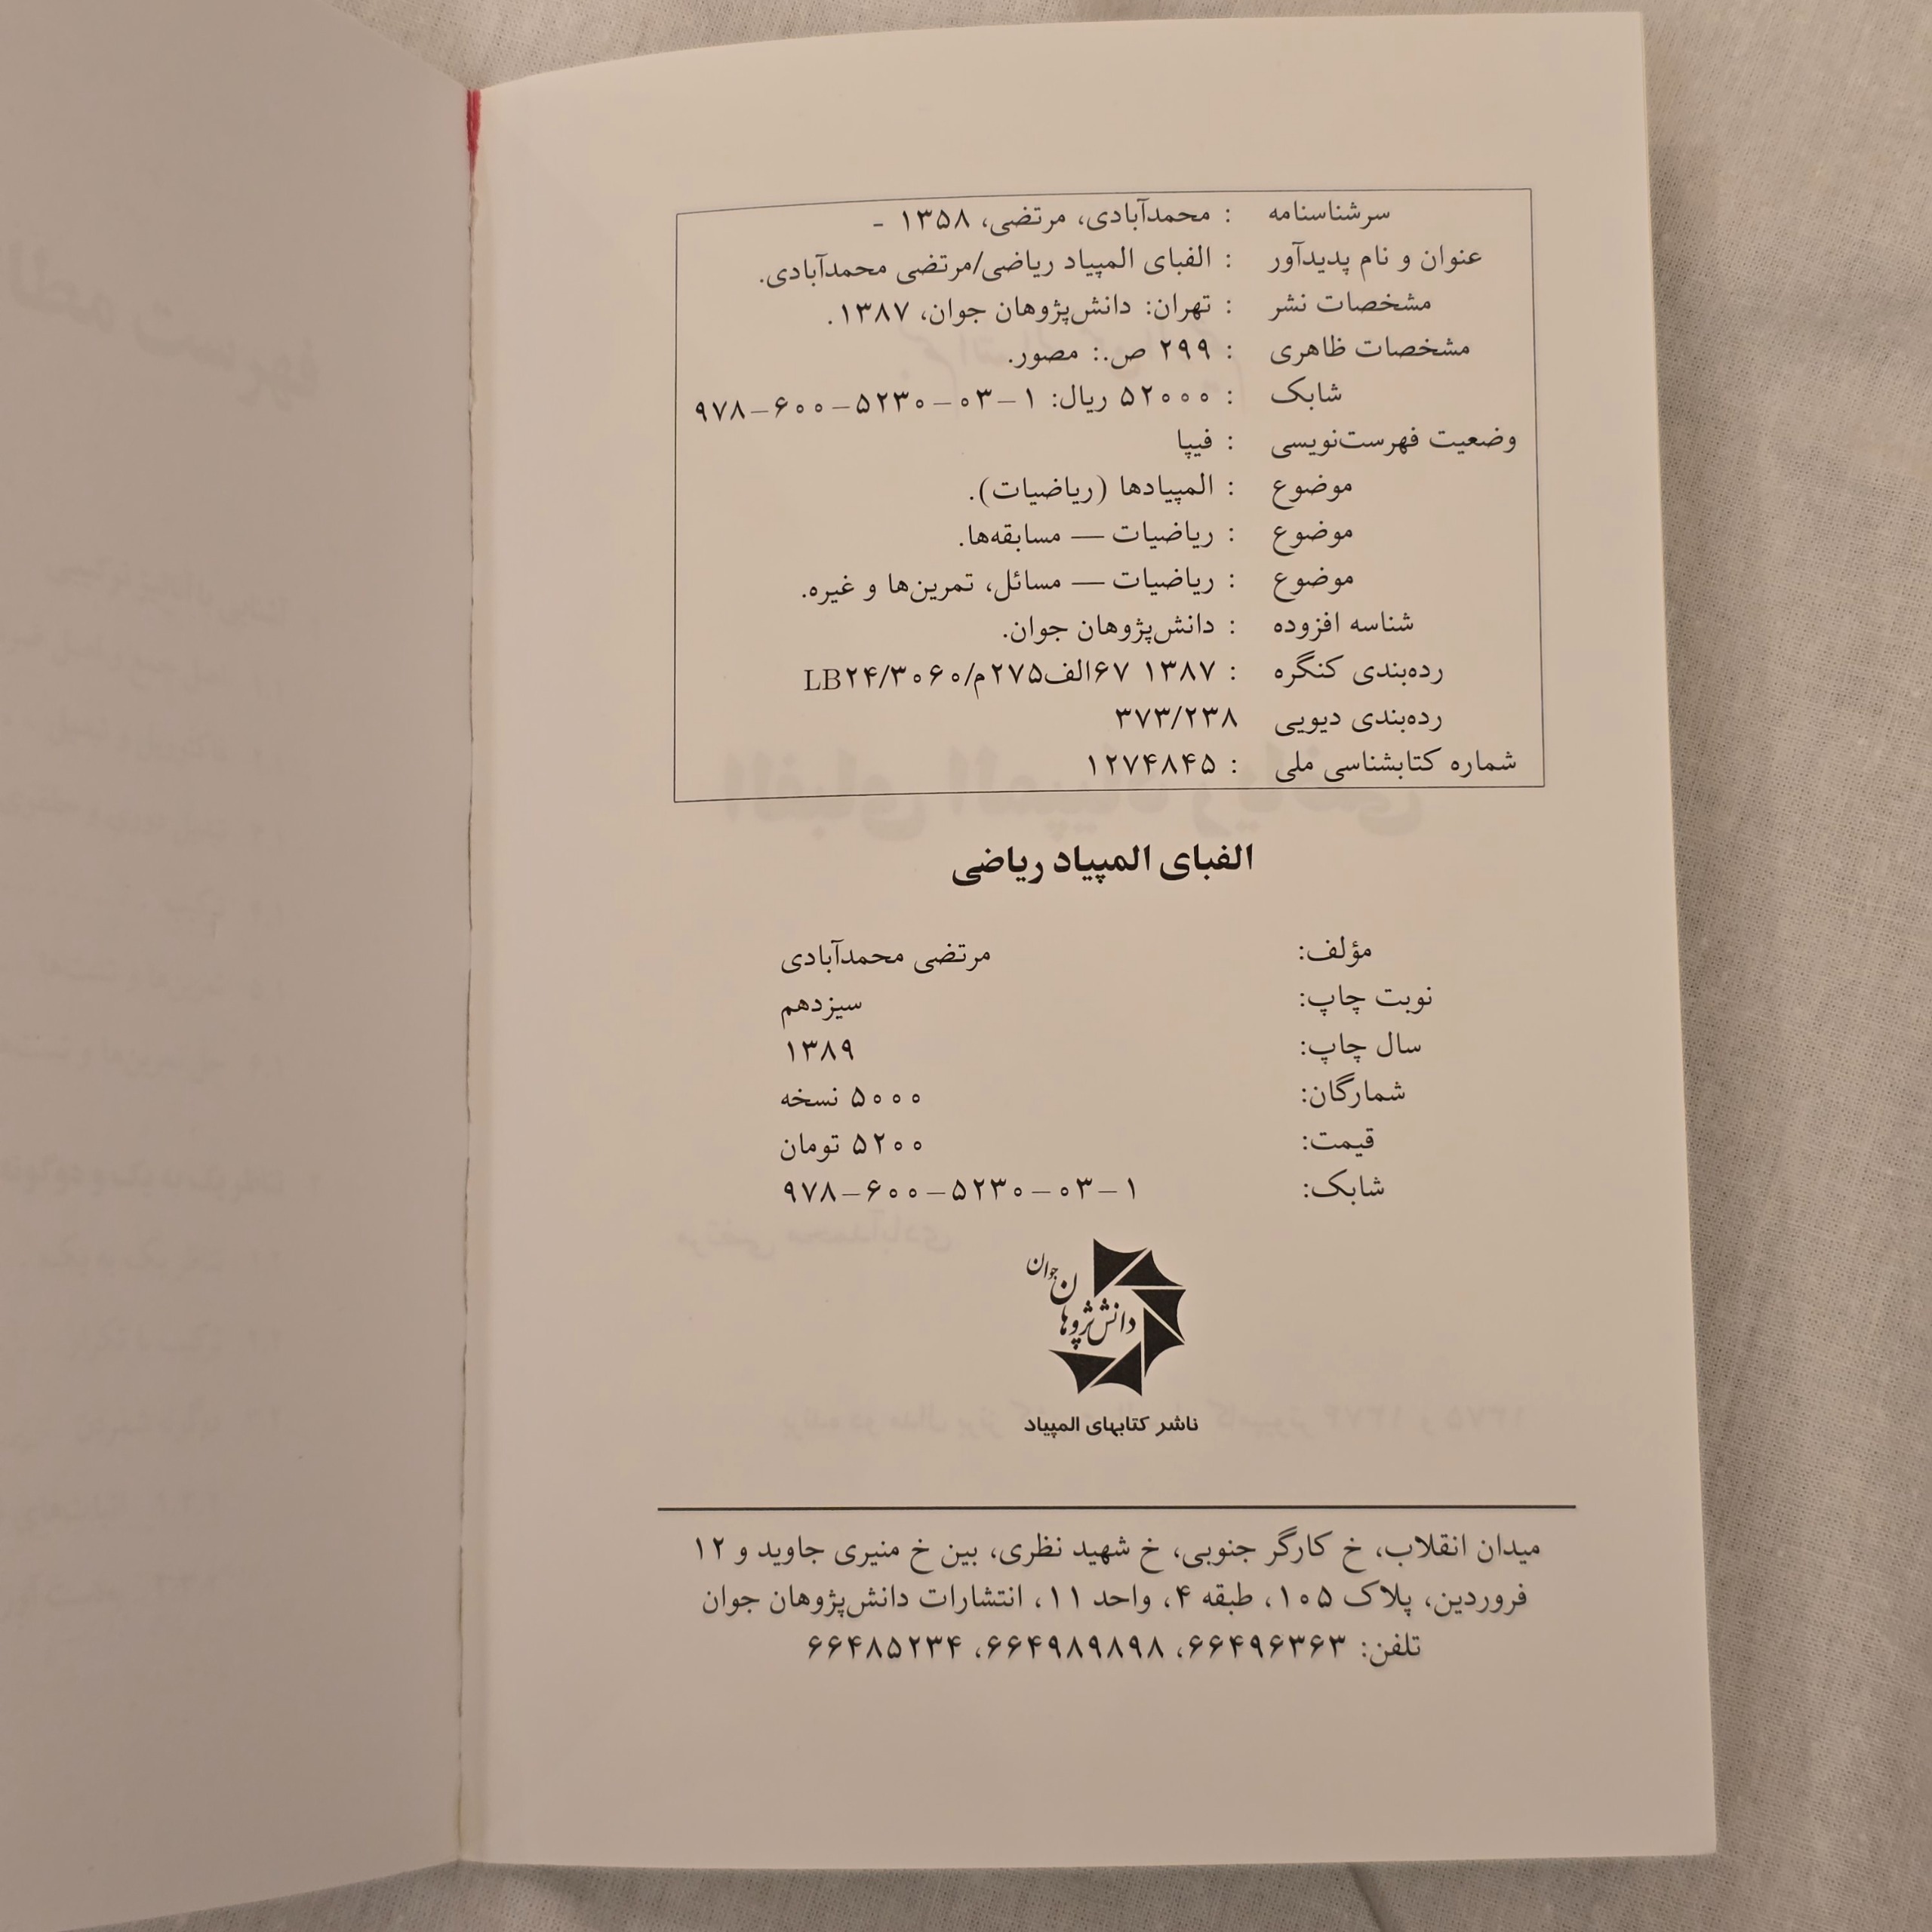 سرشناسنامه : محمدآبادی، مرتضی، ۱۳۵۸ -
عنوان و نام پدیدآور : الفبای المپیاد ریاضی/مرتضی محمدآبادی.
مشخصات نشر : تهران: دانش‌پژوهان جوان، ۱۳۸۷.
مشخصات ظاهری : ۲۹۹ ص.: مصور.
شابک : ۵۲۰۰۰ ریال: ۱-۰۳-۵۲۳۰-۶۰۰-۹۷۸
وضعیت فهرست‌نویسی : فیپا
موضوع : المپیادها (ریاضیات).
موضوع : ریاضیات — مسابقه‌ها.
موضوع : ریاضیات — مسائل، تمرین‌ها و غیره.
شناسه افزوده : دانش‌پژوهان جوان.
رده‌بندی کنگره : ۱۳۸۷ ۶۷الف۲۷۵م/LB۲۴/۳۰۶۰
رده‌بندی دیویی ۳۷۳/۲۳۸
شماره کتابشناسی ملی : ۱۲۷۴۸۴۵
الفبای المپیاد ریاضی
مؤلف: مرتضی محمدآبادی
نوبت چاپ: سیزدهم
سال چاپ: ۱۳۸۹
شمارگان: ۵۰۰۰ نسخه
قیمت: ۵۲۰۰ تومان
شابک: ۹۷۸-۶۰۰-۵۲۳۰-۰۳-۱
دانش‌پژوهان جوان
ناشر کتابهای المپیاد
میدان انقلاب، خ کارگر جنوبی، خ شهید نظری، بین خ منیری جاوید و ۱۲
فروردین، پلاک ۱۰۵، طبقه ۴، واحد ۱۱، انتشارات دانش‌پژوهان جوان
تلفن: ۶۶۴۹۶۳۶۳، ۶۶۴۹۸۹۸۹۸، ۶۶۴۸۵۲۳۴